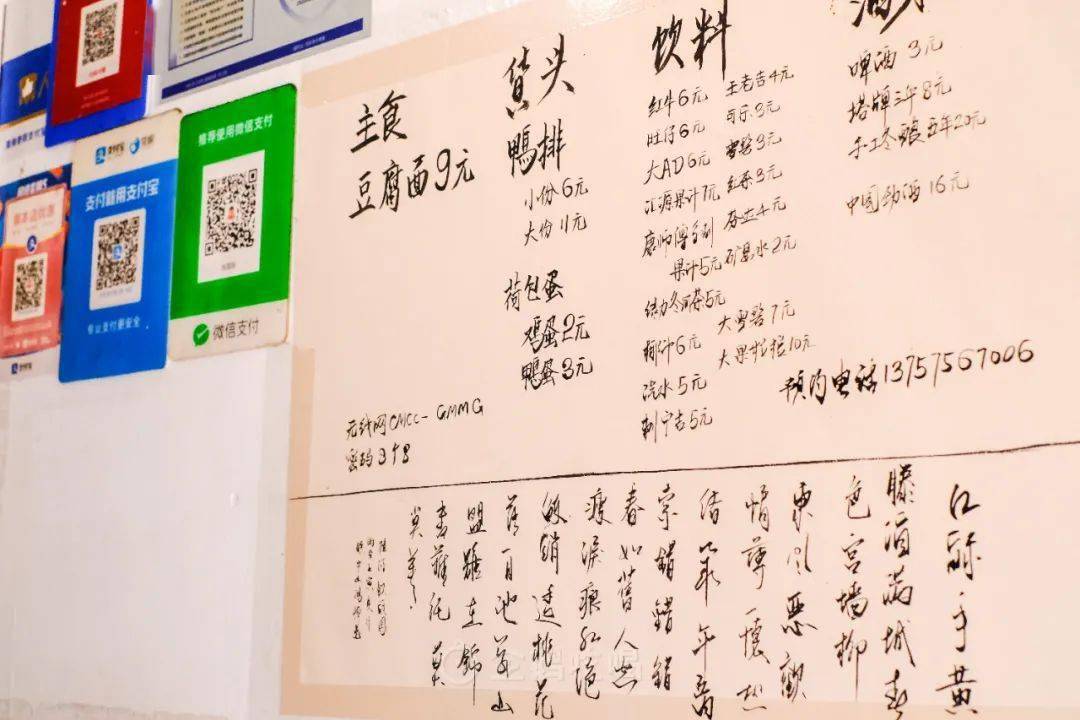 推荐使用微信支付
微信支付
支付就用支付宝
专业支付更安全
主食
豆腐面9元
鴨排
小份6元
大份11元
荷包蛋
鸡蛋2元
鴨蛋3元
无线网CMCC-GMMG
密码398
饮料
红牛6元
旺仔6元
大AD6元
汇源果汁7元
果汁5元
椰汁6元
汽水5元
刺宁吉5元
王老吉4元
可乐3元
雪碧3元
红茶3元
矿泉水2元
大雪碧7元
大果粒橙10元
啤酒3元
塔牌三年8元
手工冬酿五年20元
中国劲酒16元
预约电话13757567006
红酥手黄
滕酒满城春
色宫墙柳
东风恶歡
情薄一懷愁
绪幾年離
索錯錯錯
春如舊人空
瘦淚痕红浥
鲛绡透桃花
落闲池阁山
盟雖在锦
書難托莫
莫莫